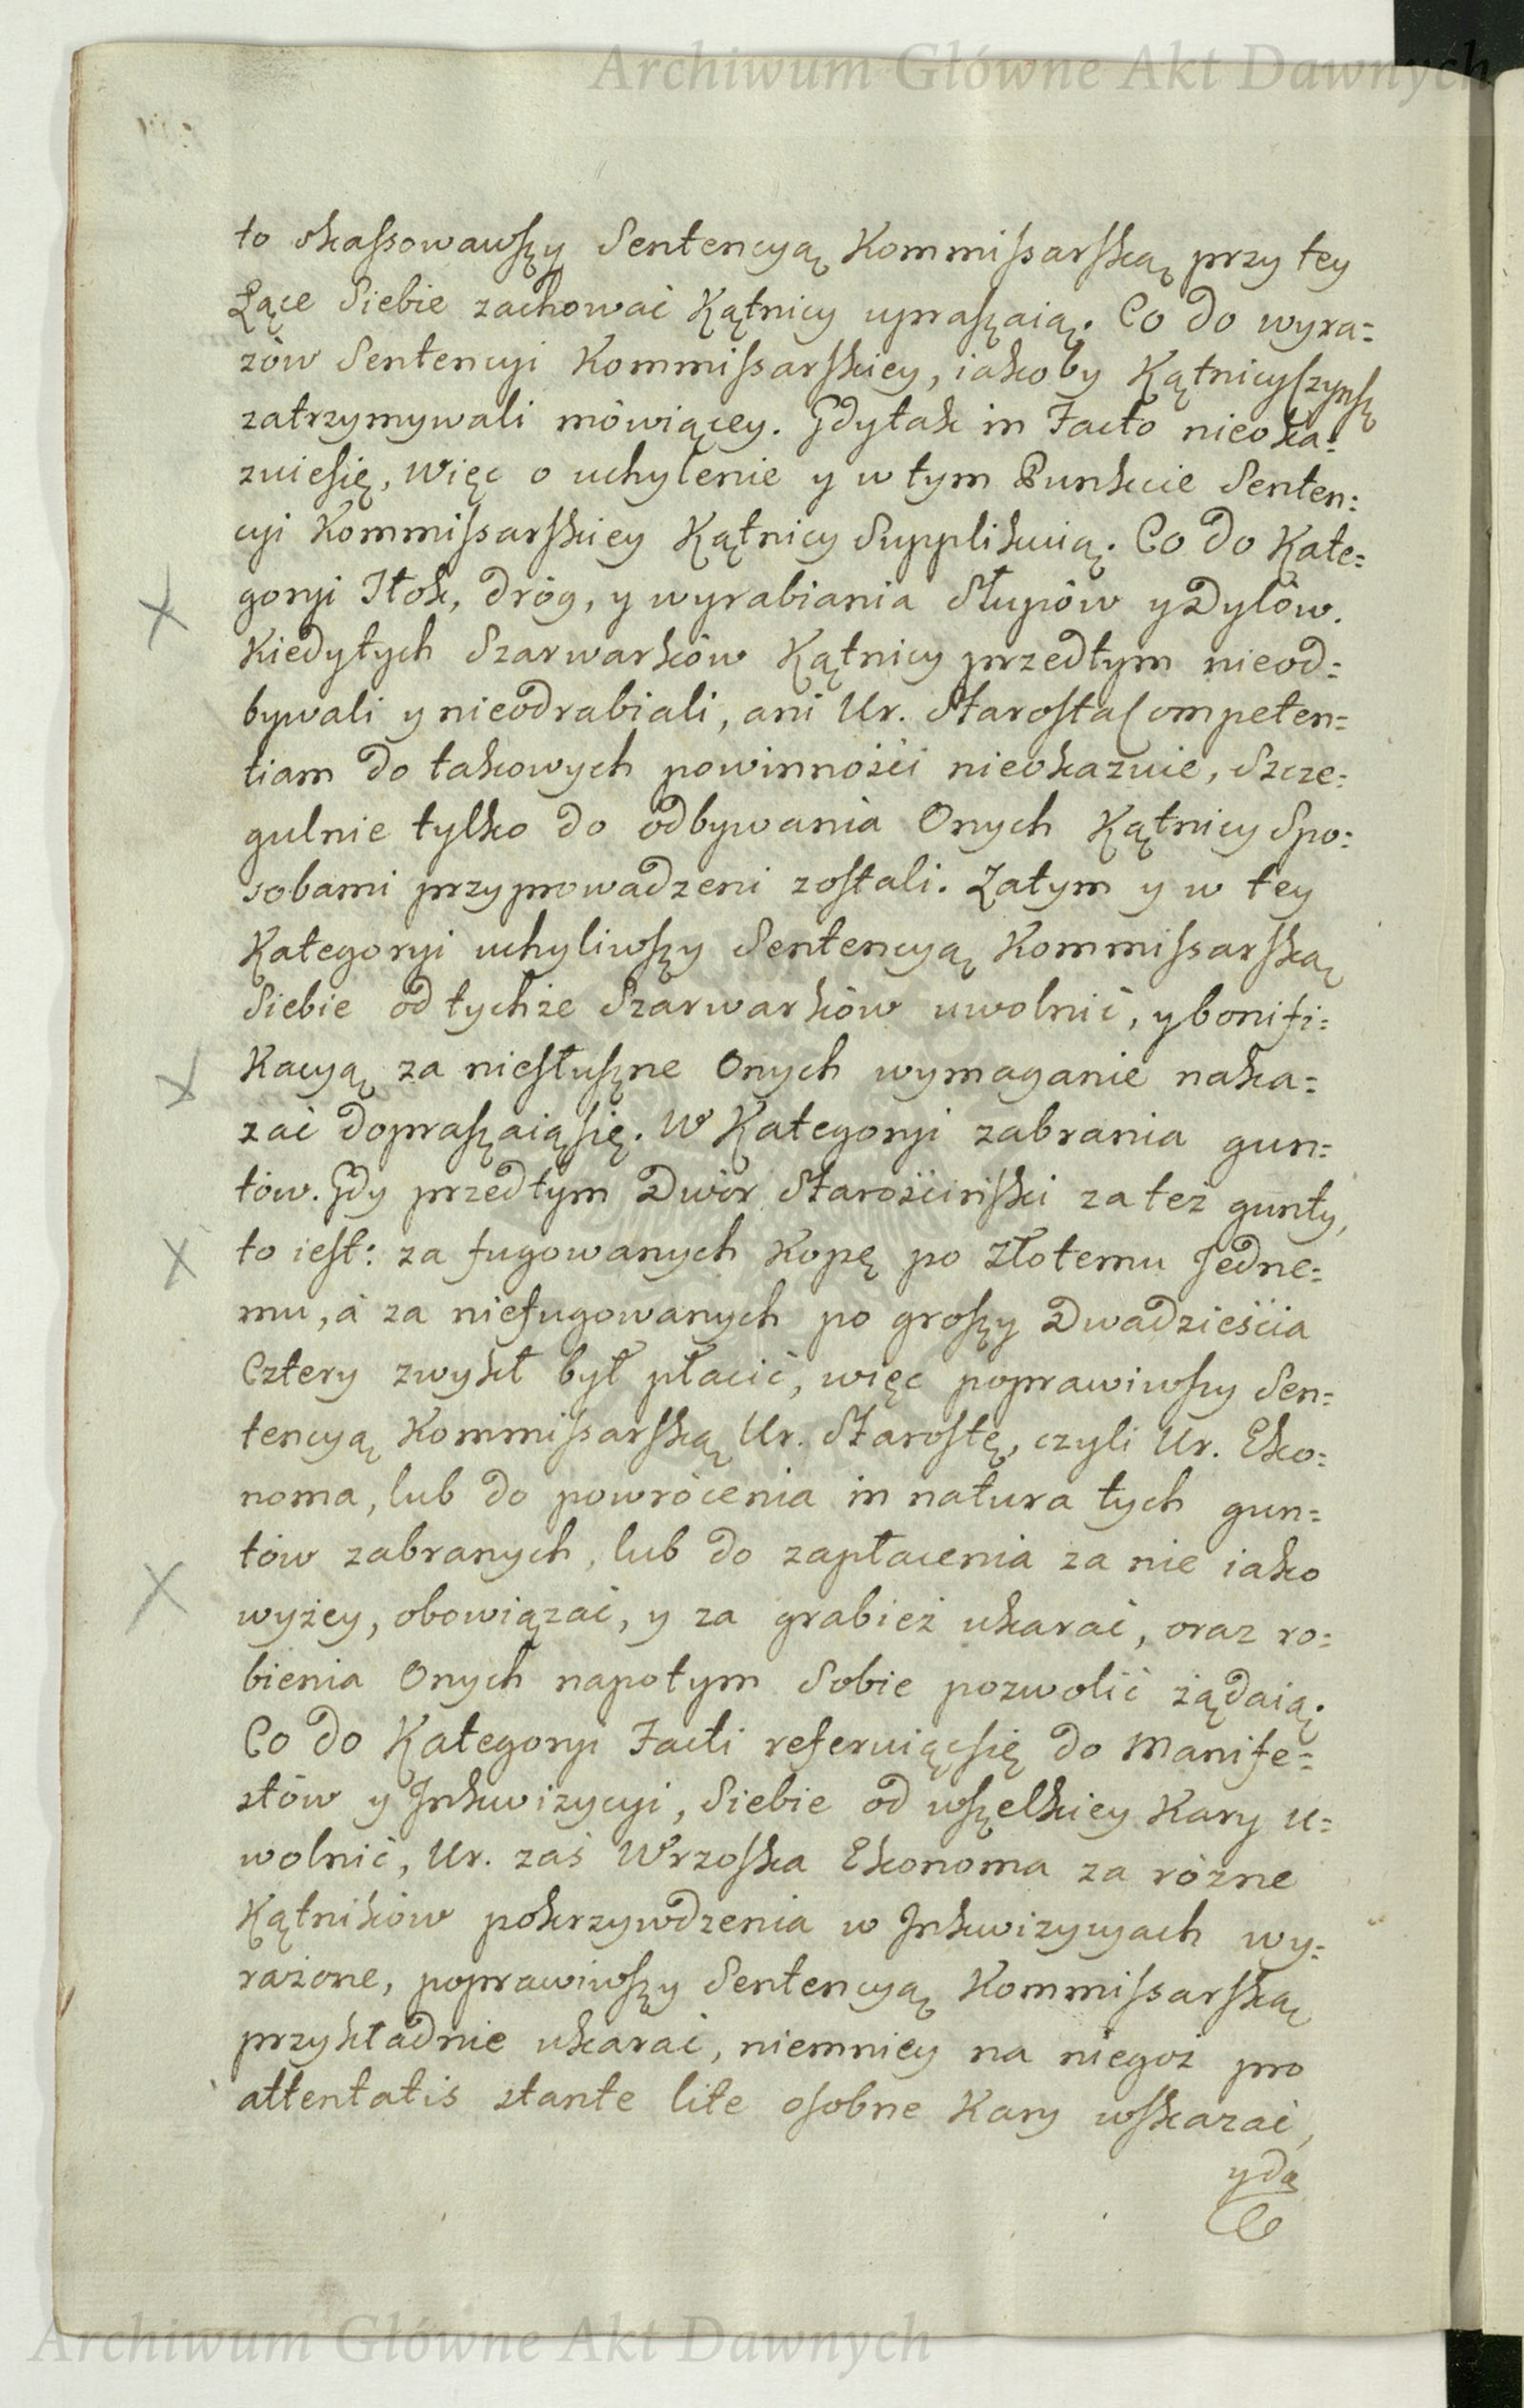 Archiwum Główne Akt Dawnych
to skassowawszy Sentencyą Kommissarską przy tey
Łące Siebie zachować Kątnicy upraszaią. Co do wyra=
zów Sentencyi Kommissarskiey, iakoby Kątnicy Czynsz
zatrzymywali mówiącey. Gdy tak in Facto nieoka=
zuiesię, Więc o uchylenie y w tym Punkcie Senten=
cyi Kommissarskiey Kątnicy Supplikuią. Co do Kate=
goryi Stok, dróg, y wyrabiania Słupów y Dylów.
Kiedy tych Szarwarków Kątnicy przedtym nieod=
bywali y nieodrabiali, ani Ur. Starosta Competen=
tiam do takowych powinności nieokazuie, Szcze=
gulnie tylko do odbywania Onych Kątnicy Spo=
sobami przyprowadzeni zostali. Zatym y w tey
Kategoryi uchyliwszy Sentencyą Kommissarską
Siebie od tychże Szarwarków uwolnić, y bonifi=
kacyą za niesłuszne Onych wymaganie naka=
zać dopraszaiąsię. W Kategoryi zabrania gun=
tów. Gdy przedtym Dwór Starościński za też gunty,
to iest: za fugowanych Kopę po Złotemu Jedne=
mu, á za niefugowanych po groszy Dwadzieścia
Cztery zwykł był płacić, więc poprawiwszy Sen=
tencyą Kommissarską Ur. Starostę, czyli Ur. Eko=
noma, lub do powrócenia in natura tych gun=
tów zabranych, lub do zapłacenia za nie iako
wyżey, obowiązać, y za grabież ukarać, oraz ro=
bienia Onych napotym Sobie pozwolić żądaią.
Co do Kategoryi Facti referuiącsię do Manife=
stów y Inkwizycyi, Siebie od wszelkiey Kary u=
wolnić, Ur. zaś Wrzoska Ekonoma za różne
Kątników pokrzywdzenia w Inkwizycyach wy=
rażone, poprawiwszy Sentencyą Kommissarską
przykładnie ukarać, niemniey na niegoż pro
attentatis stante lite osobne Kary wskazać,
y da
Archiwum Główne Akt Dawnych